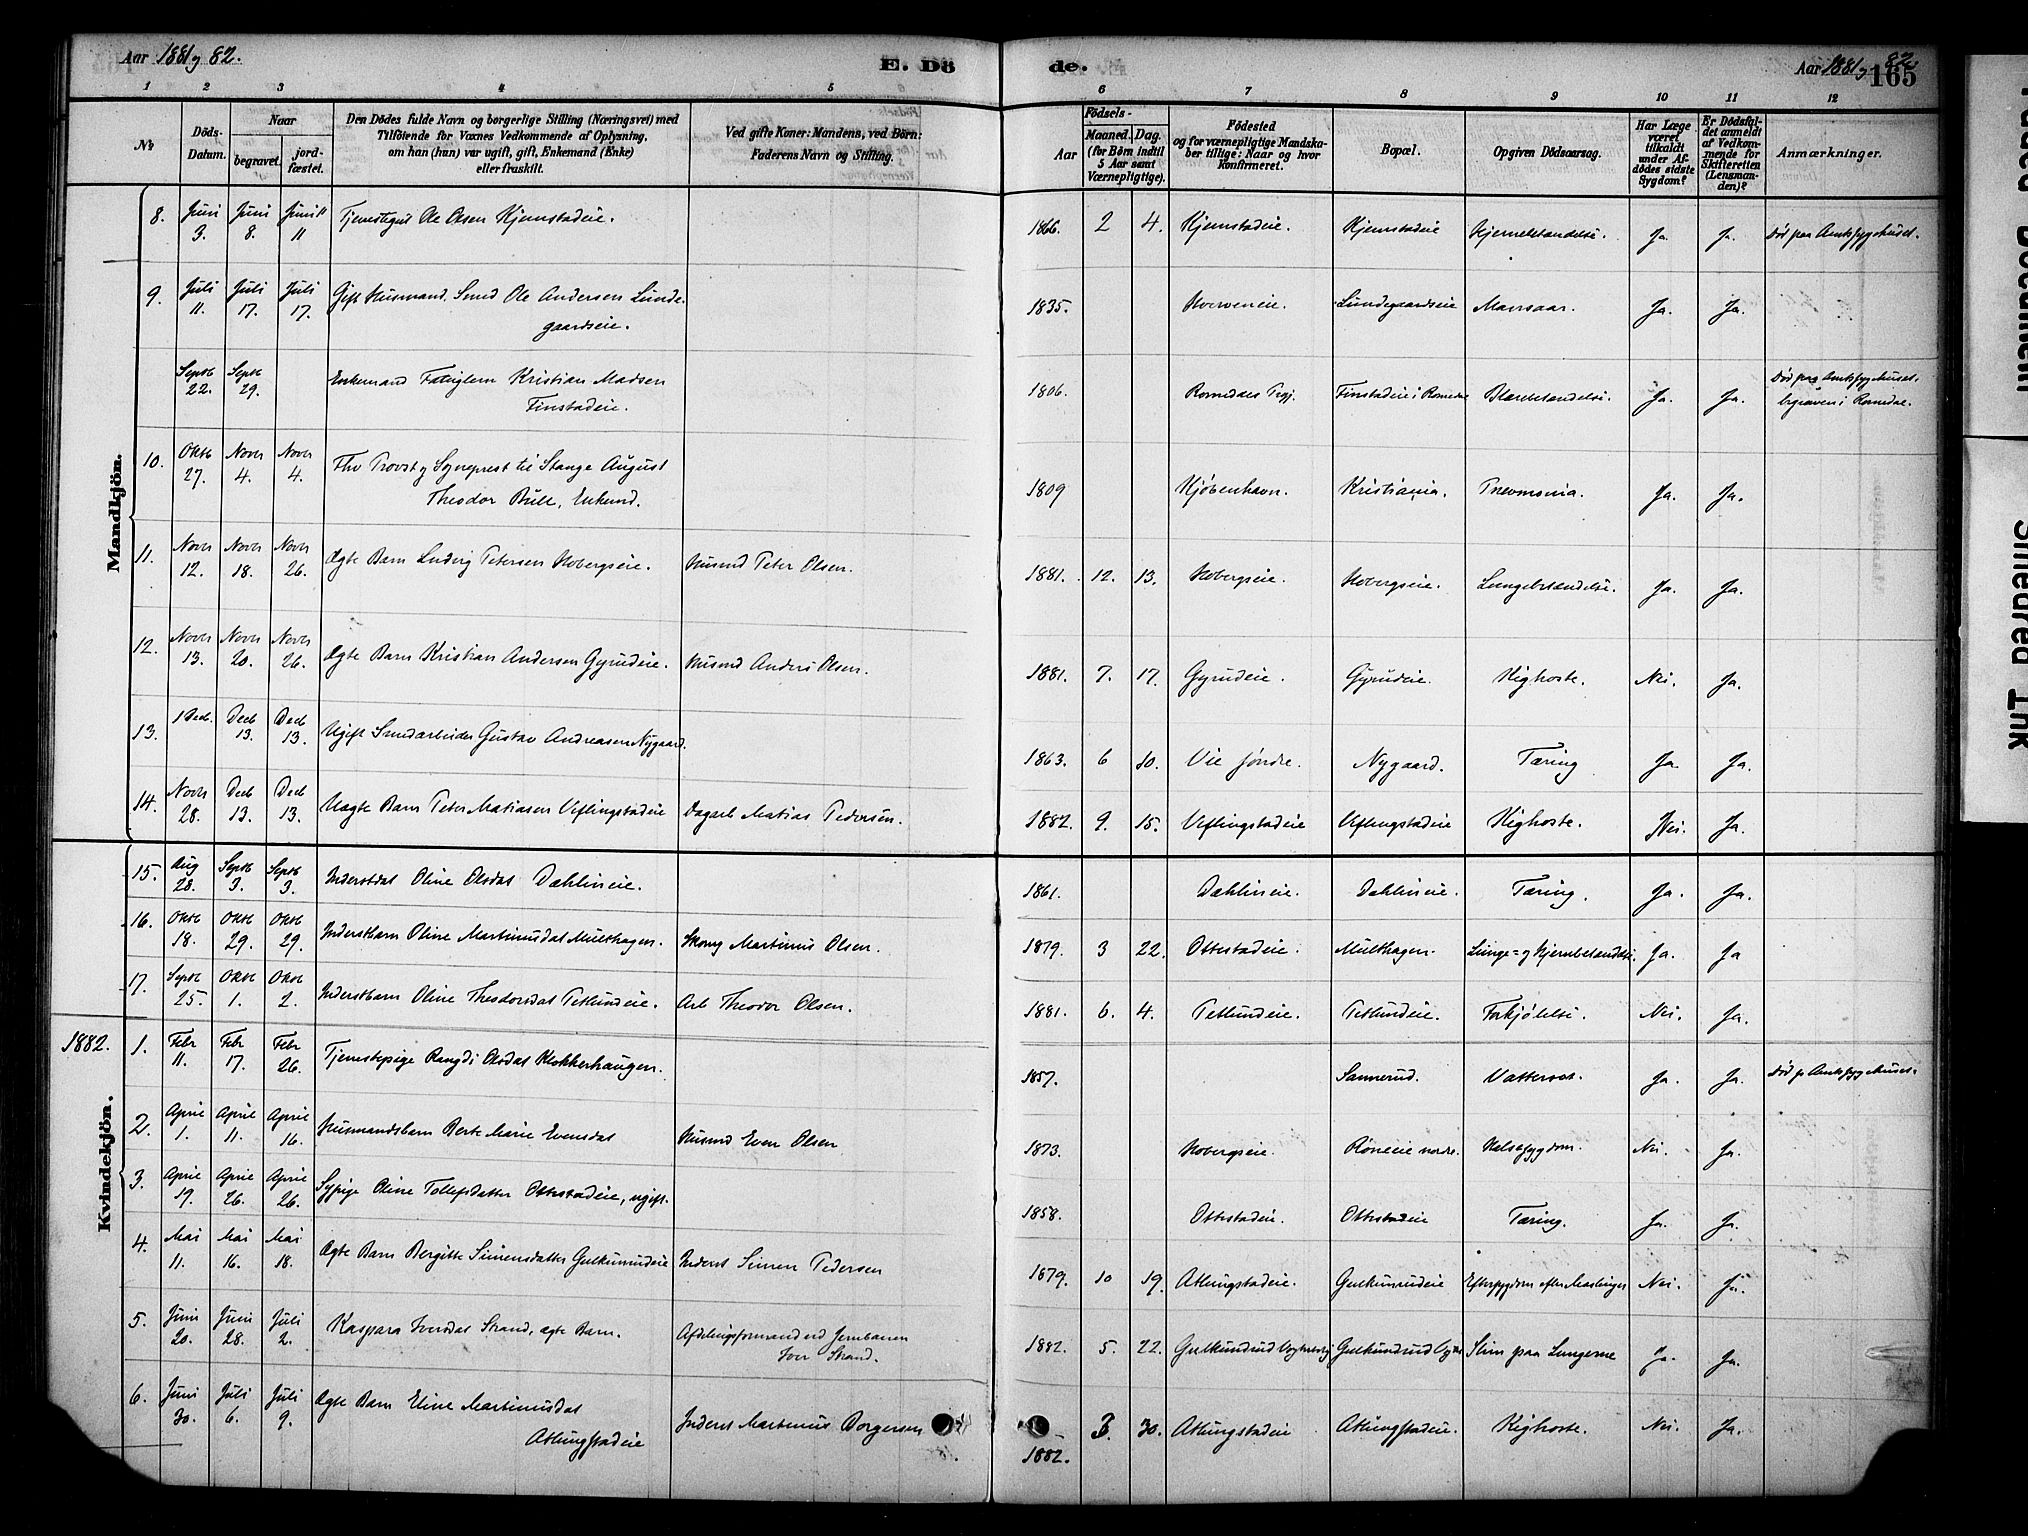 Aar 1881 og 82.
E. Dö
de.
Aar 1881 og 82
165
1 2 3 4 5 6 7 8 9 10 11 12
No
Döds-Datum.
Naar
begravet.
jord-fæstet.
Den Dödes fulde Navn og borgerlige Stilling (Næringsvei) med
Tilföiende for Voxnes Vedkommende af Oplysning,
om han (hun) var ugift, gift, Enkemand (Enke)
eller fraskilt.
Ved gifte Koner: Mandens, ved Börn:
Faderens Navn og Stilling.
Födsels-
Aar
Maaned.
Dag.
(for Börn indtil
5 Aar samt
Værnepligtige).
Födested
og for værnepligtige Mandska-
ber tillige: Naar og hvor
konfirmeret.
Bopæl.
Opgiven Dödsaarsag.
Har Læge
været
tilkaldt
under Af-
dödes sidste
Sygdom?
Er Dödsfal-
det anmeldt
af Vedkom-
mende for
Skifteretten
(Lensman-
den)?
Anmærkninger.
Mandkjön.
8. Juni 3. Juni 8. Juni 11 Tjenestegut Ole Olsen Kjemstadeie. 1866. 2 4. Kjemstadeie. Kjemstadeie Hjernebetændelse. Ja. Ja. Död paa Amtssygehuset.
9. Juli 11. Juli 17. Juli 17. Gift Husmand. Smed Ole Andersen Lunde-
gaardseie. 1835. Lundegaardseie Ja. Ja.
Septb 22. Septb 29. Enkemand Fattiglem Kristian Madsen
Finstadeie. 1806. Romedals Prgj. Finstadeie i Romedal Blærebetændelse. Ja. Ja. Död paa Amtssygehuset
begraven i Romedal.
10. Oktb 27. Novb 4. Novb 4. Fhv Provst og Sogneprest til Stange August
Theodor Bull, Enkmd. 1809 Kjøbenhavn. Kristiania. Pneumonia. Ja. Ja.
11. Novb 12. Novb 18. Novb 26. Ægte Barn Ludvig Petersen Hobergseie. Husmd Peter Olsen. 1881. 12. 13. Hobergseie. Hobergseie. Lungebetændelse. Ja. Ja.
12. Novb 13. Novb 20. Novb 26. Ægte Barn Kristian Andersen Gyrudeie. Husmd Anders Olsen. 1881. 7. 17. Gyrudeie. Gyrudeie. Kighoste. Nei. Ja.
13. 1 Decb. Decb 13. Decb 13. Ugift Smedarbeider Gustav Andreasen Nygaard. 1863. 6 10. Vie søndre. Nygaard. Tæring Ja. Ja.
14. Novb 28. Decb 13. Decb 13. Uægte Barn Peter Matiasen Uflingstadeie Dagarb Matias Pedersen. 1882. 9. 15. Uflingstadeie Uflingstadeie Kighoste. Nei. Ja.
Kvindekjön.
15. Aug 28. Septb 3. Septb 3. Inderstdat Oline Olsdat Dæhlineie. 1861. Dæhlineie. Dæhlineie. Tæring. Ja. Ja.
16. Oktb 18. Oktb 29. Oktb 29. Inderstbarn Oline Martinusdat Multhagen. Martinus Olsen. 1879. 3 22. Ottestadeie. Multhagen. Lunge- og Hjernebetændelse. Ja. Ja
17. Septb 25. Oktb 1. Oktb 2. Inderstbarn Oline Theodorsdat Tetlundeie. Arb Theodor Olsen. 1881. 6. 4. Tetlundeie. Tetlundeie. Forkjølelse. Nei. Ja.
1882.
1. Febr 11. Febr 17. Febr 26. Tjenestepige Rangdi Olsdat Klokkerhaugen. 1857. Sannerud. Vattersot. Ja. Ja. Död p. Amtssygehuset.
2. April 1. April 11. April 16. Husmandsbarn Berte Marie Evensdat Husmd Even Olsen 1873. Hobergseie. Röneeie nordre. Halssygdom. Nei. Ja.
3. April 19. April 26. April 26. Sypige Oline Tollefsdatter Ottestadeie, ugift. 1858. Ottestadeie. Ottestadeie Tæring. Ja. Ja.
4. Mai 11. Mai 16. Mai 18. Ægte Barn Bergitte Simensdatter Gulkunrudeie Inderst Simen Pedersen 1879. 10 19. Atlungstadeie. Gulkunrudeie Eftersygdom efter Meslinger Nei. Ja.
5. Juni 20. Juni 28. Juli 2. Kaspara Iversdat Strand, ægte Barn. Afdelingsformand ved Jernbanen
Iver Strand. 1882. 5. 22. Gulkundrud Gulkundrud Slim paa Lungerne Ja. Ja.
6. Juni 30. Juli 6. Juli 9. Ægte Barn Eline Martinusdat
Atlungstadeie Inderst Martinus Borgersen 1882. 3. 30. Atlungstadeie Atlungstadeie. Kighoste. Nei. Ja.
Faded Document
Smeared Ink